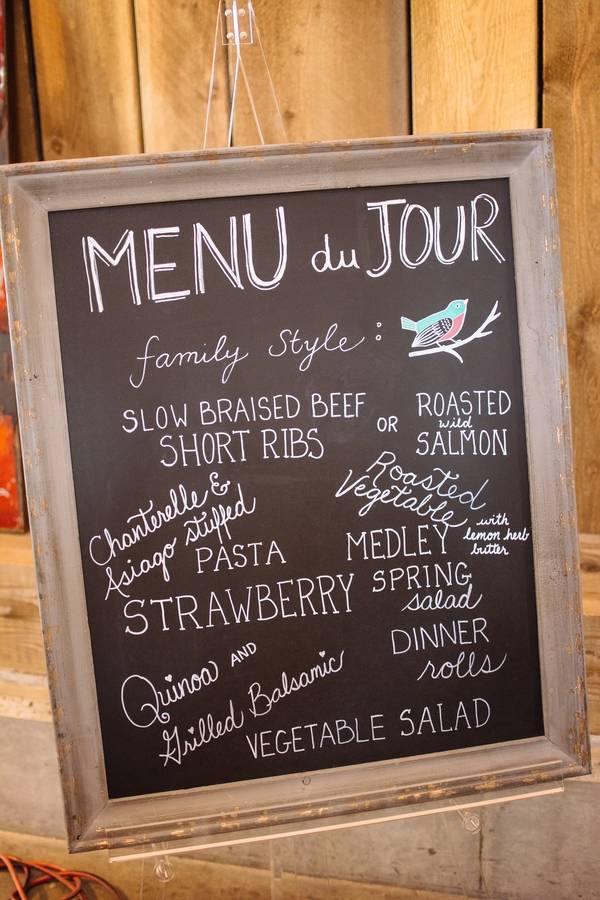 MENU du JOUR
family Style:
SLOW BRAISED BEEF
SHORT RIBS
OR
ROASTED
wild
SALMON
Chanterelle &
Asiago stuffed
PASTA
Roasted
Vegetable
MEDLEY
with
lemon herb
butter
STRAWBERRY SPRING
salad
DINNER
rolls
Quinoa AND
Grilled Balsamic
VEGETABLE SALAD